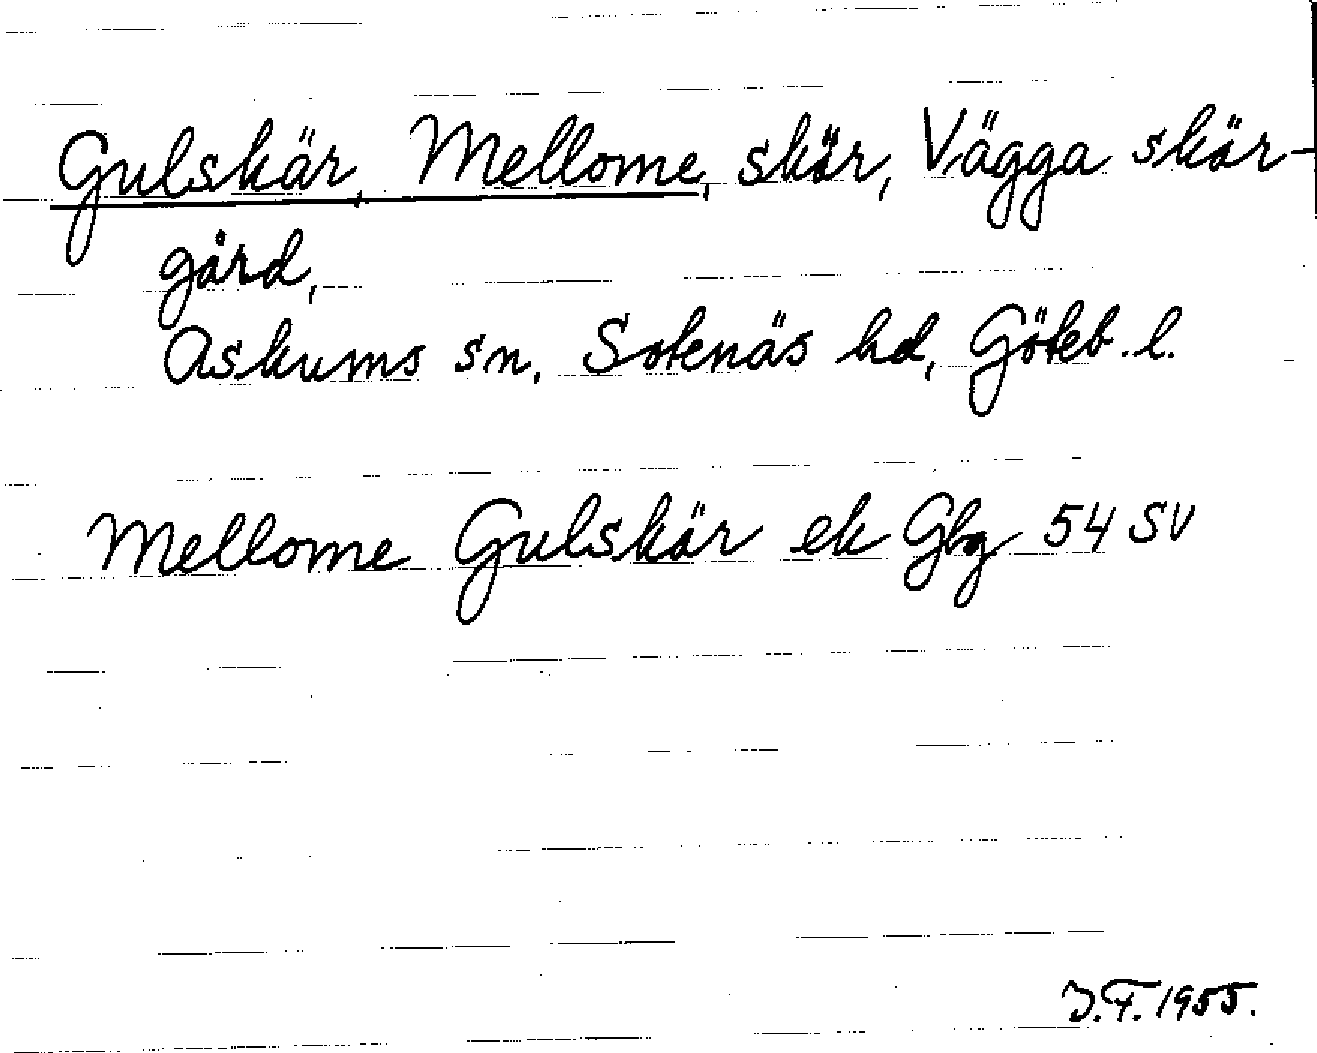 Gulskär, Mellome, skär, Vägga skär-
gård,
Askums sn, Sotenäs hd, Göteb. l.
Mellome Gulskär ek Gbg 54 SV
J.F. 1955.